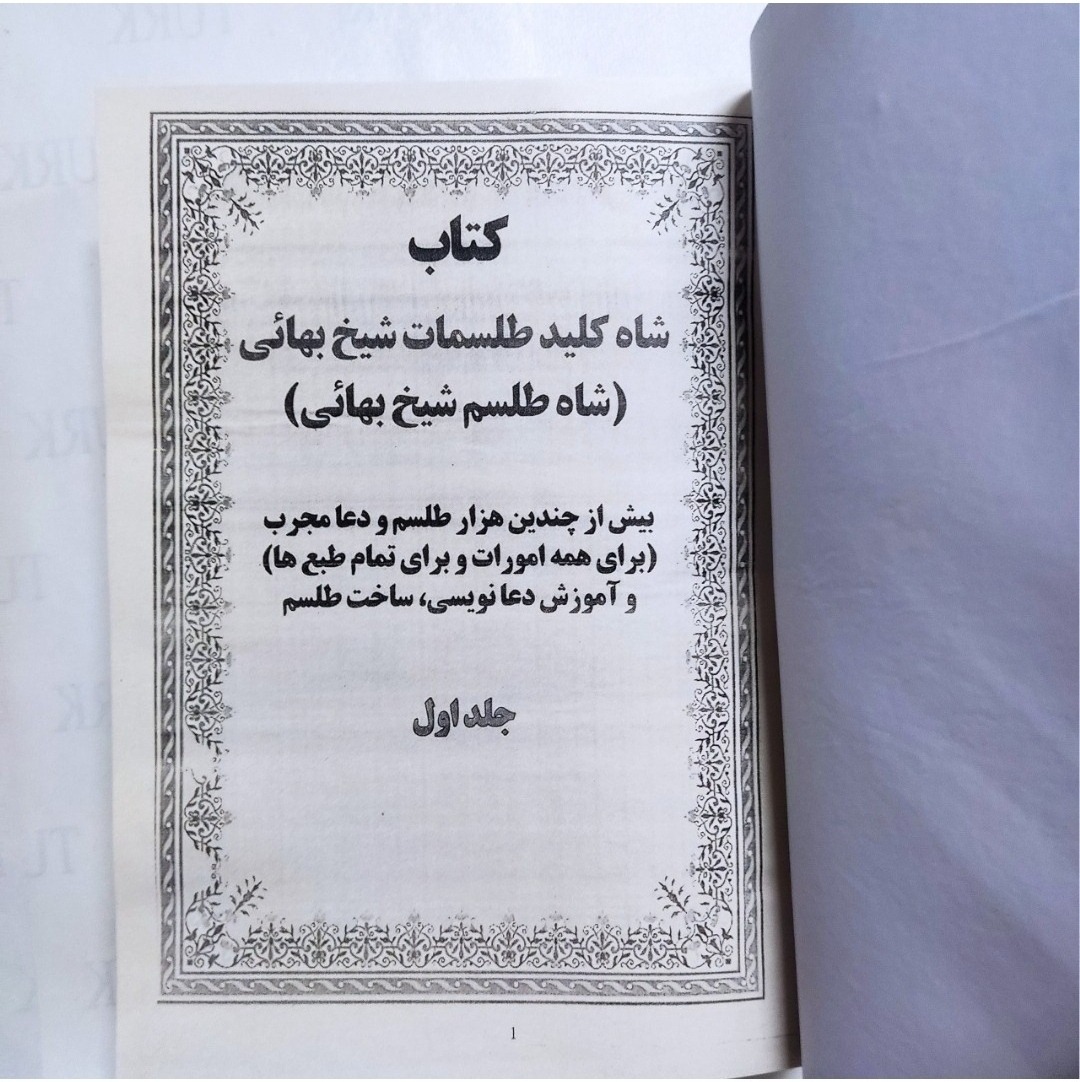 کتاب
شاه کلید طلسمات شیخ بهائی
(شاه طلسم شیخ بهائی)
بیش از چندین هزار طلسم و دعا مجرب
(برای همه امورات و برای تمام طبع ها)
و آموزش دعا نویسی، ساخت طلسم
جلد اول
1